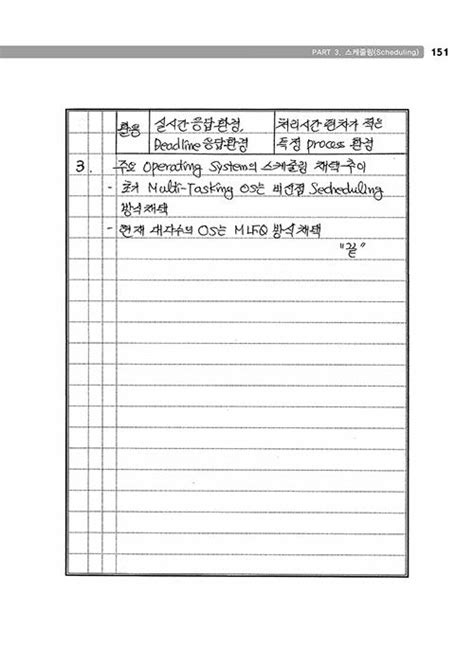 PART 3. 스케줄링(Scheduling) 151
활용 실시간 응답환경, 처리시간 편차가 적은
Deadline 응답환경 특정 process 환경
3. 주요 Operating System의 스케줄링 채택 추이
- 초기 Multi-Tasking OS는 비선점 Secheduling
방식 채택
- 현재 대다수의 OS는 MLFQ 방식 채택
"끝"